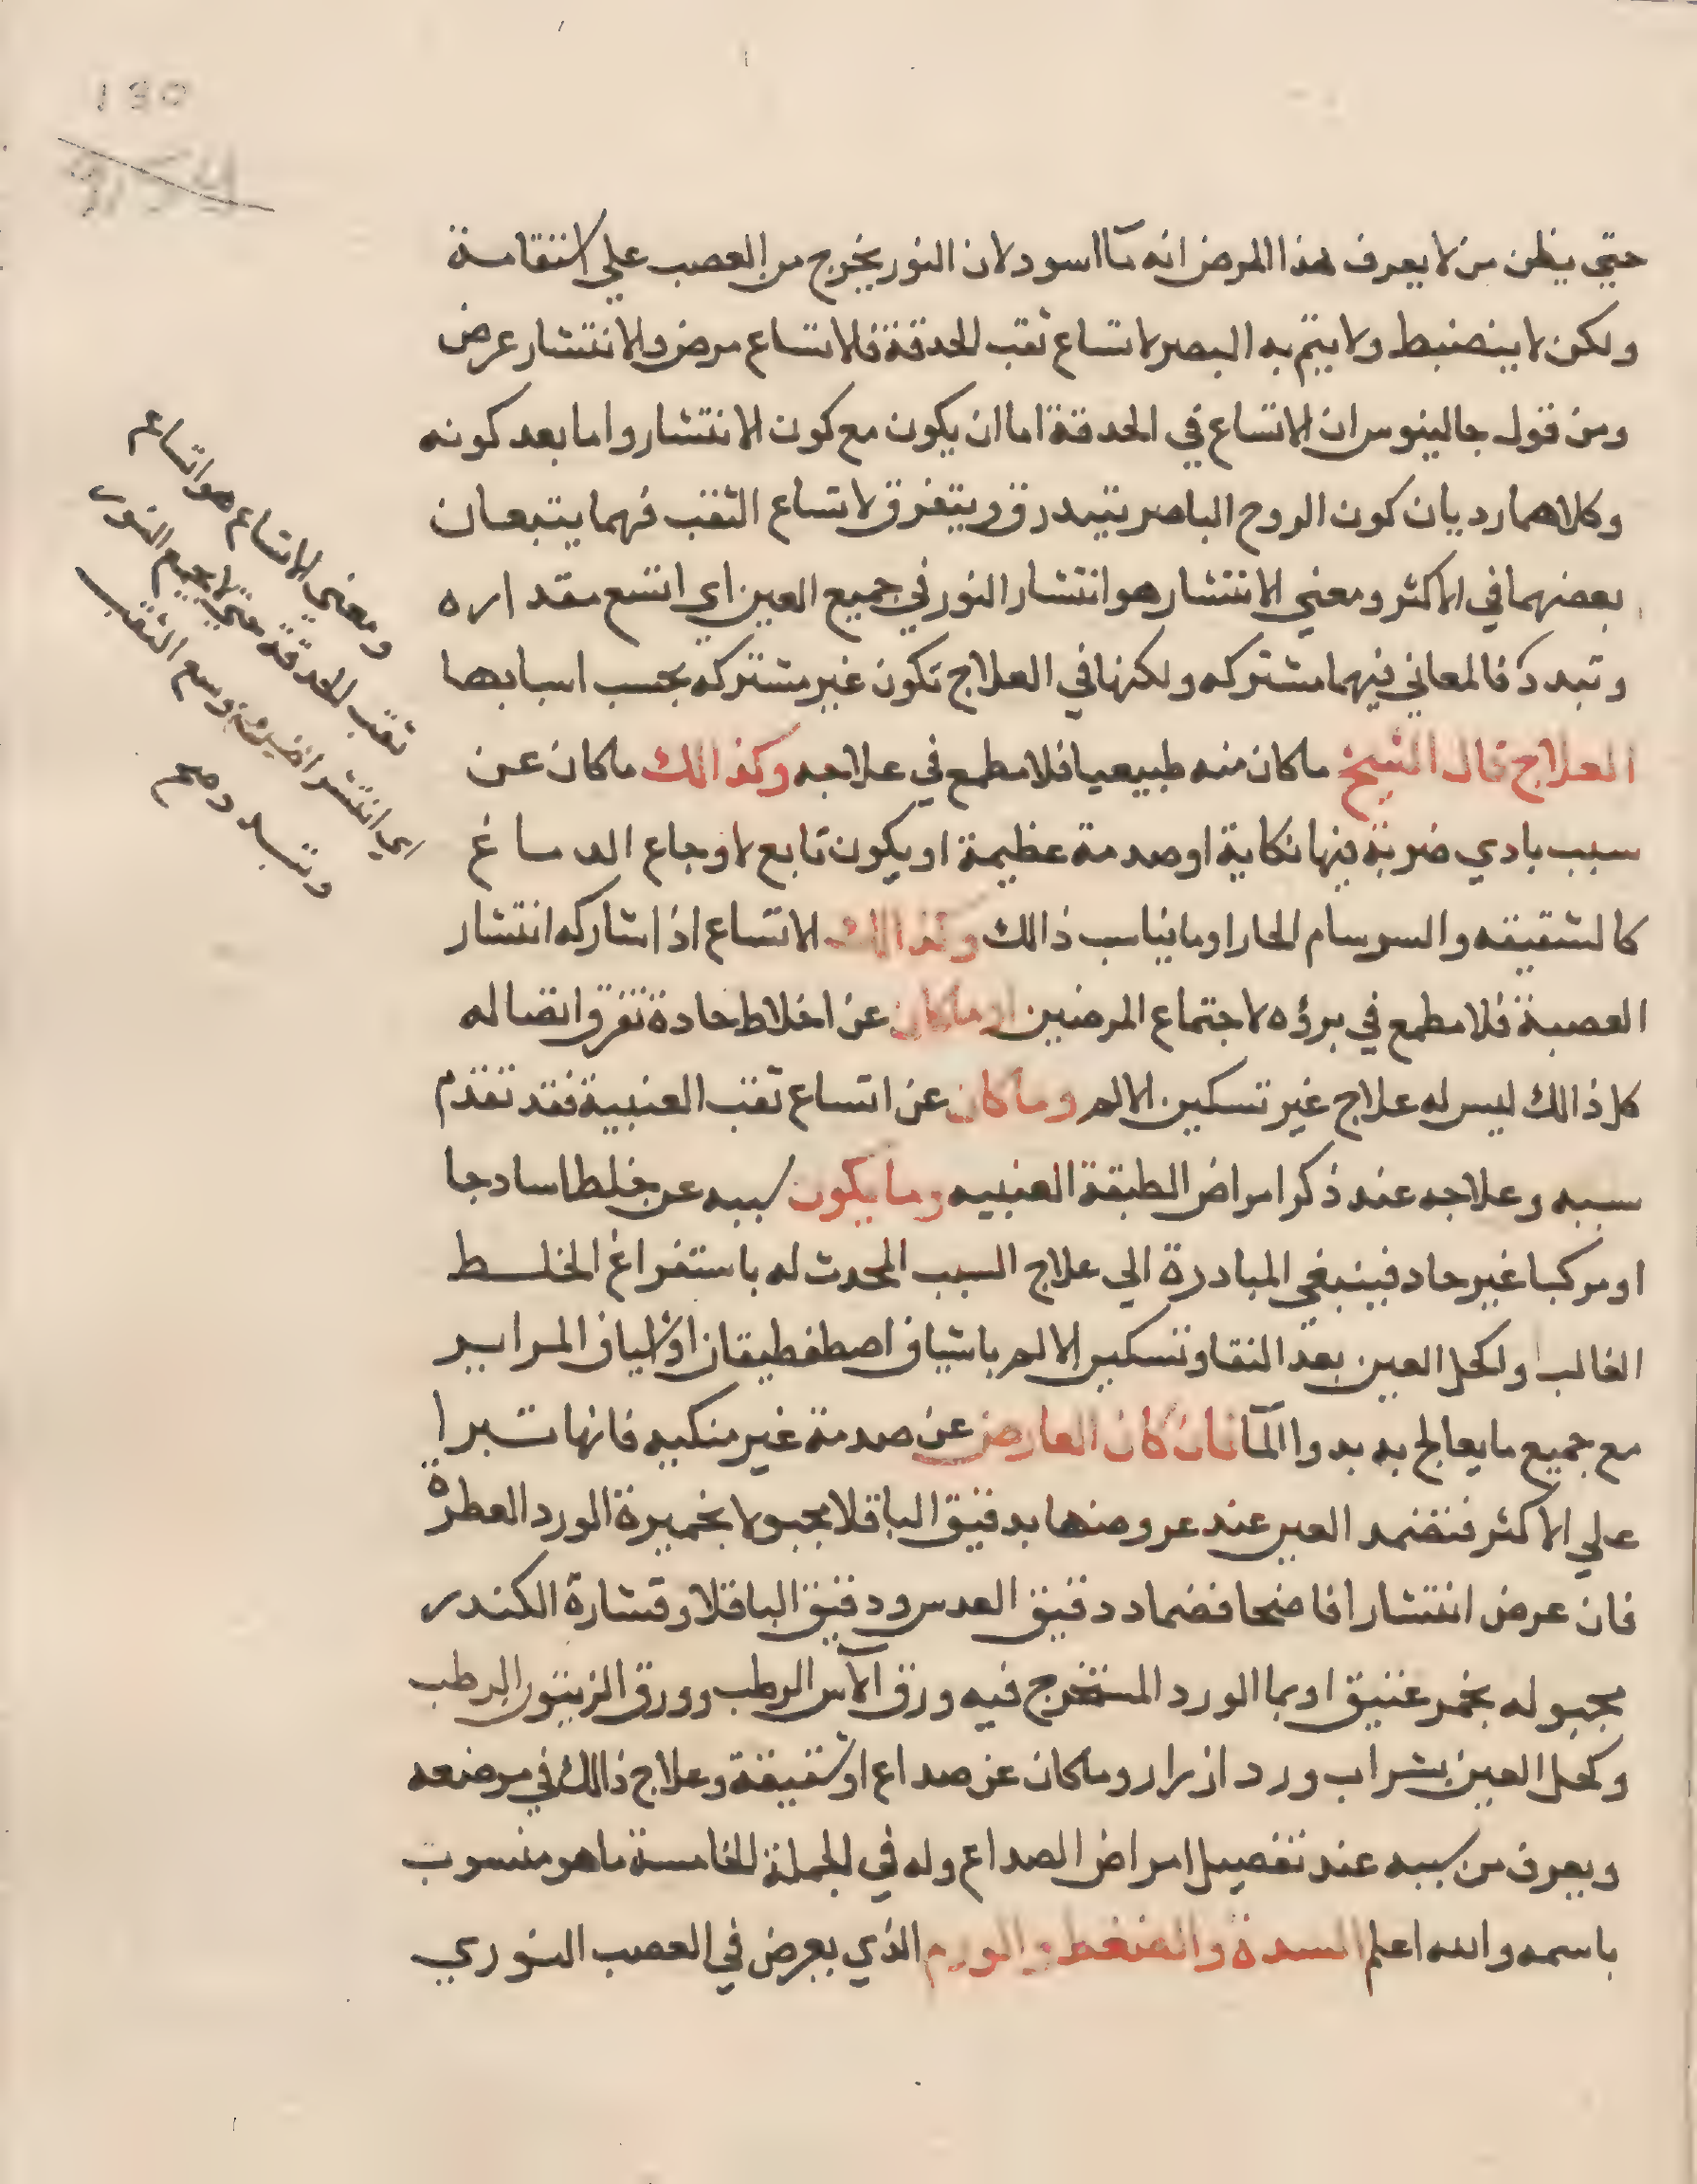 130
حتي يظن من لا يعرف هذا المرض انه مآ اسود لان النور يخرج من العصب علي استقامة
ولكن لا ينضبط ولا يتم به البصر لاتساع ثقب الحدقة فالاتساع مرض والانتشار عرض
ومن قول جالينوس ان الاتساع في الحدقة اما ان يكون مع كون الانتشار واما بعد كونه
وكلاهما رديان كون الروح الباصر يتبدرق ويتفرق لاتساع الثقب فهما يتبعان
بعضهما في الاكثر ومعني الانتشار هو انتشار النور في جميع العين اي اتسع مقداره
وتبدد فالمعاني فيهما مشتركه ولكنها في العلاج تكون غير مشتركه بحسب اسبابها
العلاج قال الشيخ ماكان منه طبيعيا فلا مطمع في علاجه وكذالك ماكان عن
سبب بادي ضربة فيها نكاية او صدمة عظيمة او يكون تابع لاوجاع الدماغ
كالشقيقه والسرسام الحار او ما يناسب ذالك وكذالك الاتساع اذا شاركه انتشار
العصبة فلا مطمع في برؤه لاجتماع المرضين او ماكان عن اخلاط حادة تفرق اتصاله
كل ذالك ليس له علاج غير تسكين الالم وماكان عن اتساع ثقب العنبية فقد تقدم
سببه وعلاجه عند ذكر امراض الطبقة العنبيه وما يكون سببه عن خلطا سادجا
او مركبا غير حاد فينبغي المبادرة الي علاج السبب المحدث له باستفراغ الخلط
الغالب ولكحل العين بعد النقا وتسكين الالم باشياف اصطفطيقان او اشياف المراير
مع جميع ما يعالج به بدوا المآ فان كان العارض عن صدمة غير منكيه فانها تبرا
علي الاكثر فتضمد العين عند عروضها بدقيق الباقلا مجبولا بخميرة الورد العطرة
فان عرض انتشارا فاضحا فضماد دقيق العدس ودقيق الباقلا وقشارة الكندر
مجبوله بخمر عتيق او بما الورد المستخرج فيه ورق الآس الرطب وورق الزيتون الرطب
وكحل العين بشراب ورد ازرار وماكان عن صداع او شقيقة وعلاج ذالك في موضعه
ويعرف من سببه عند تفصيل امراض الصداع وله في الجملة الخامسة ما هو منسوب
باسمه والله اعلم السدة والضغط والورم الذي يعرض في العصب النوري
ومعني الاتساع هو اتساع
ثقب الحدقة حتي لا يجمع النور
اي انتشر وسع الثقب
وتبدد صح